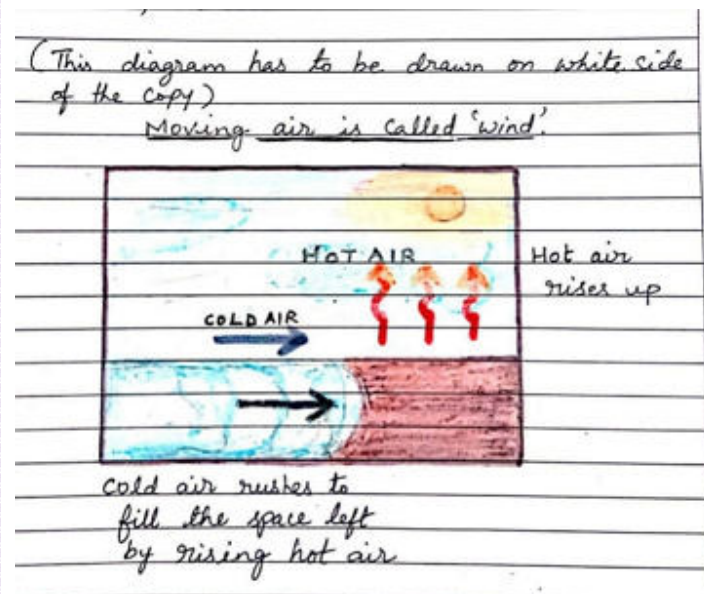 (This diagram has to be drawn on white side
of the copy)
Moving air is called 'wind'.
HOT AIR
Hot air
rises up
COLD AIR
cold air rushes to
fill the space left
by rising hot air